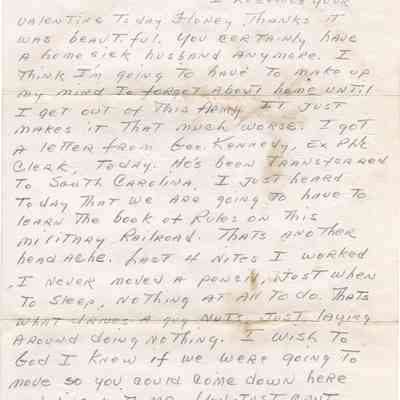 I received your
valentine today Honey Thanks it
was beautiful. You certainly have
a home sick husband anymore. I
think I'm going to have to make up
my mind to forget about home until
I get out of this Army It just
makes it that much worse. I got
a letter from Geo. Kennedy, Ex PRR
Clerk, today. He's been transferred
to South Carolina. I just heard
today that we are going to have to
learn the book of rules on this
military Railroad. Thats another
head ache. Last 4 nites I worked
, I never moved a pencil, Just when
to sleep, nothing at all to do. Thats
what drives a guy nuts, Just laying
around doing nothing. I wish to
God I knew if we were going to
move so you could come down here